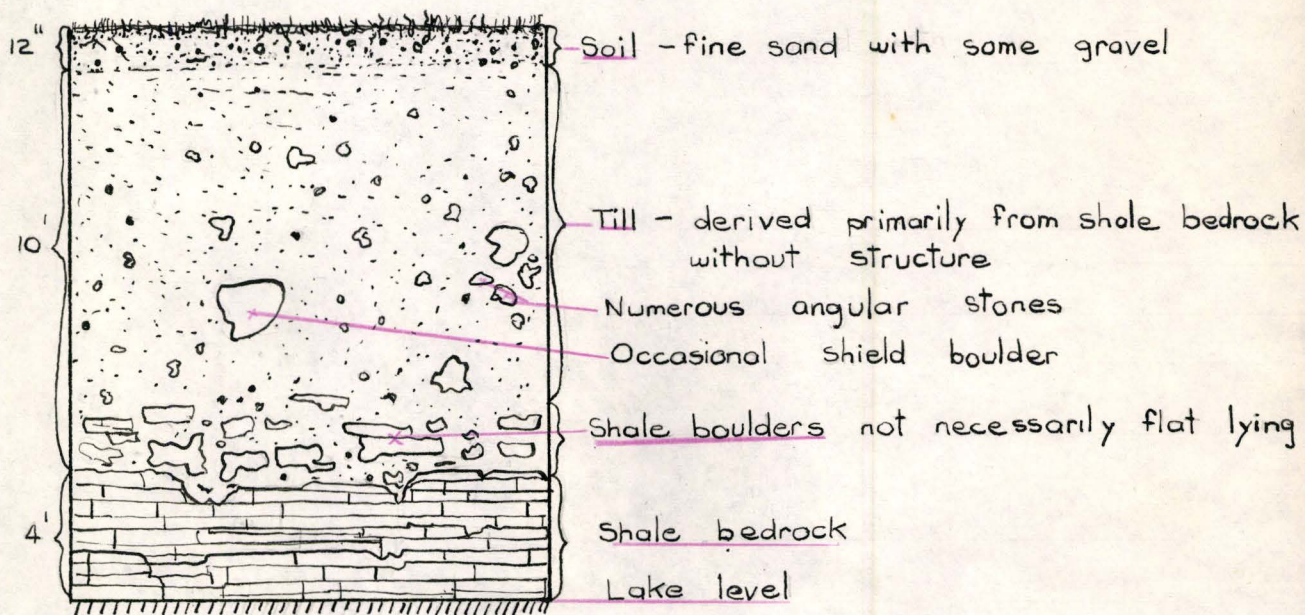 12"
Soil - fine sand with some gravel
10'
Till - derived primarily from shale bedrock
without structure
Numerous angular stones
Occasional shield boulder
Shale boulders not necessarily flat lying
4'
Shale bedrock
Lake level